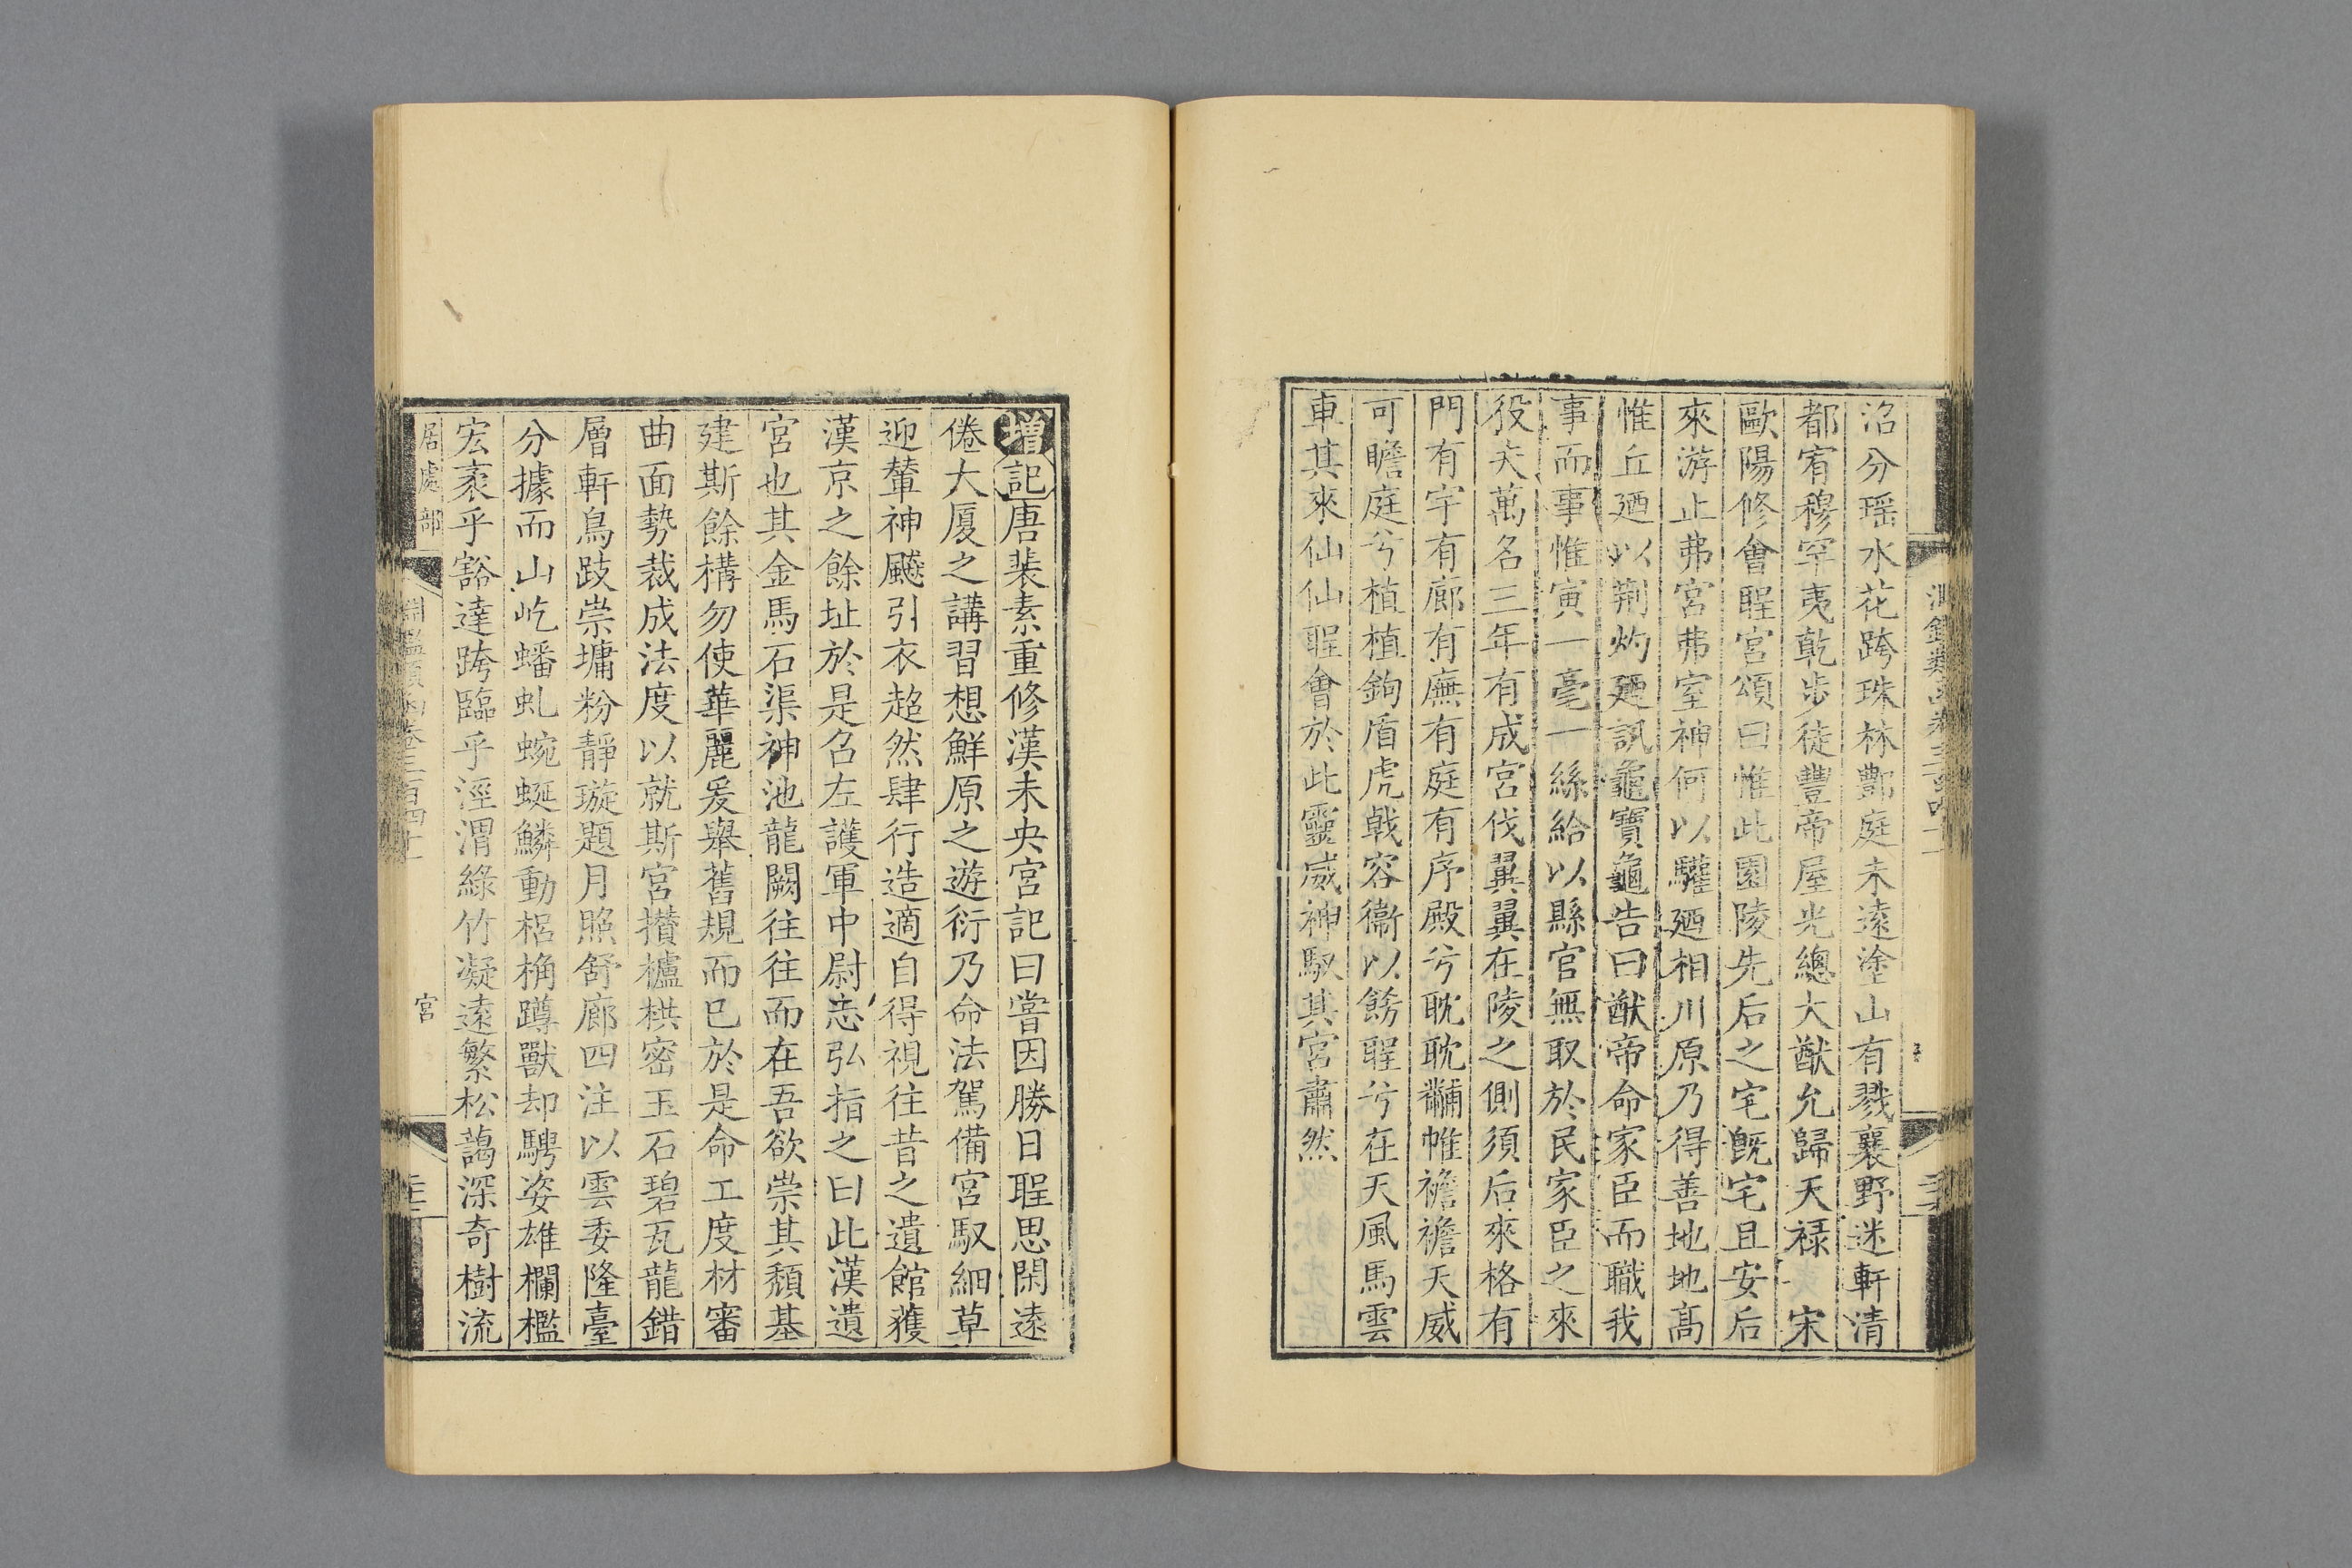 沼分瑶水花跨珠林酆庭未遠塗山有戮襄野迷軒清
都宥穆罕夷乾步徒豐帝屋光總大猷允歸天祿 宋
歐陽修會聖宮頌曰惟此園陵先后之宅旣宅且安后
來游止弗宮弗室神何以驩廼相川原乃得善地地高
惟丘廼以荆灼廼訊龜寶龜告曰猷帝命家臣而職我
事而事惟寅一毫一絲給以縣官無取於民家臣之來
役夫萬名三年有成宮伐翼翼在陵之側須后來格有
門有宇有廊有廡有庭有序殿兮耽耽黼帷襜襜天威
可瞻庭兮植植鉤盾虎戟容衞以飭聖兮在天風馬雲
車其來仙仙聖會於此靈威神馭其宮肅然
增記唐裴素重修漢未央宮記曰嘗因勝日聖思閑遠
倦大厦之講習想鮮原之遊衍乃命法駕備宮馭細草
迎輦神飈引衣超然肆行造適自得視往昔之遺館獲
漢京之餘址於是召左護軍中尉志弘指之曰此漢遺
宮也其金馬石渠神池龍闕往往而在吾欲崇其頹基
建斯餘構勿使華麗爰舉舊規而已於是命工度材審
曲面勢裁成法度以就斯宮攢櫨栱密玉石碧瓦龍錯
層軒鳥跂崇墉粉靜璇題月照舒廊四注以雲委隆臺
分據而山屹蟠虬蜿蜒鱗動梠桷蹲獸却騁姿雄欄檻
宏袤乎豁達跨臨乎涇渭綠竹凝遠繁松藹深奇樹流
居處部 淵鑑類函卷三百四十一 宮